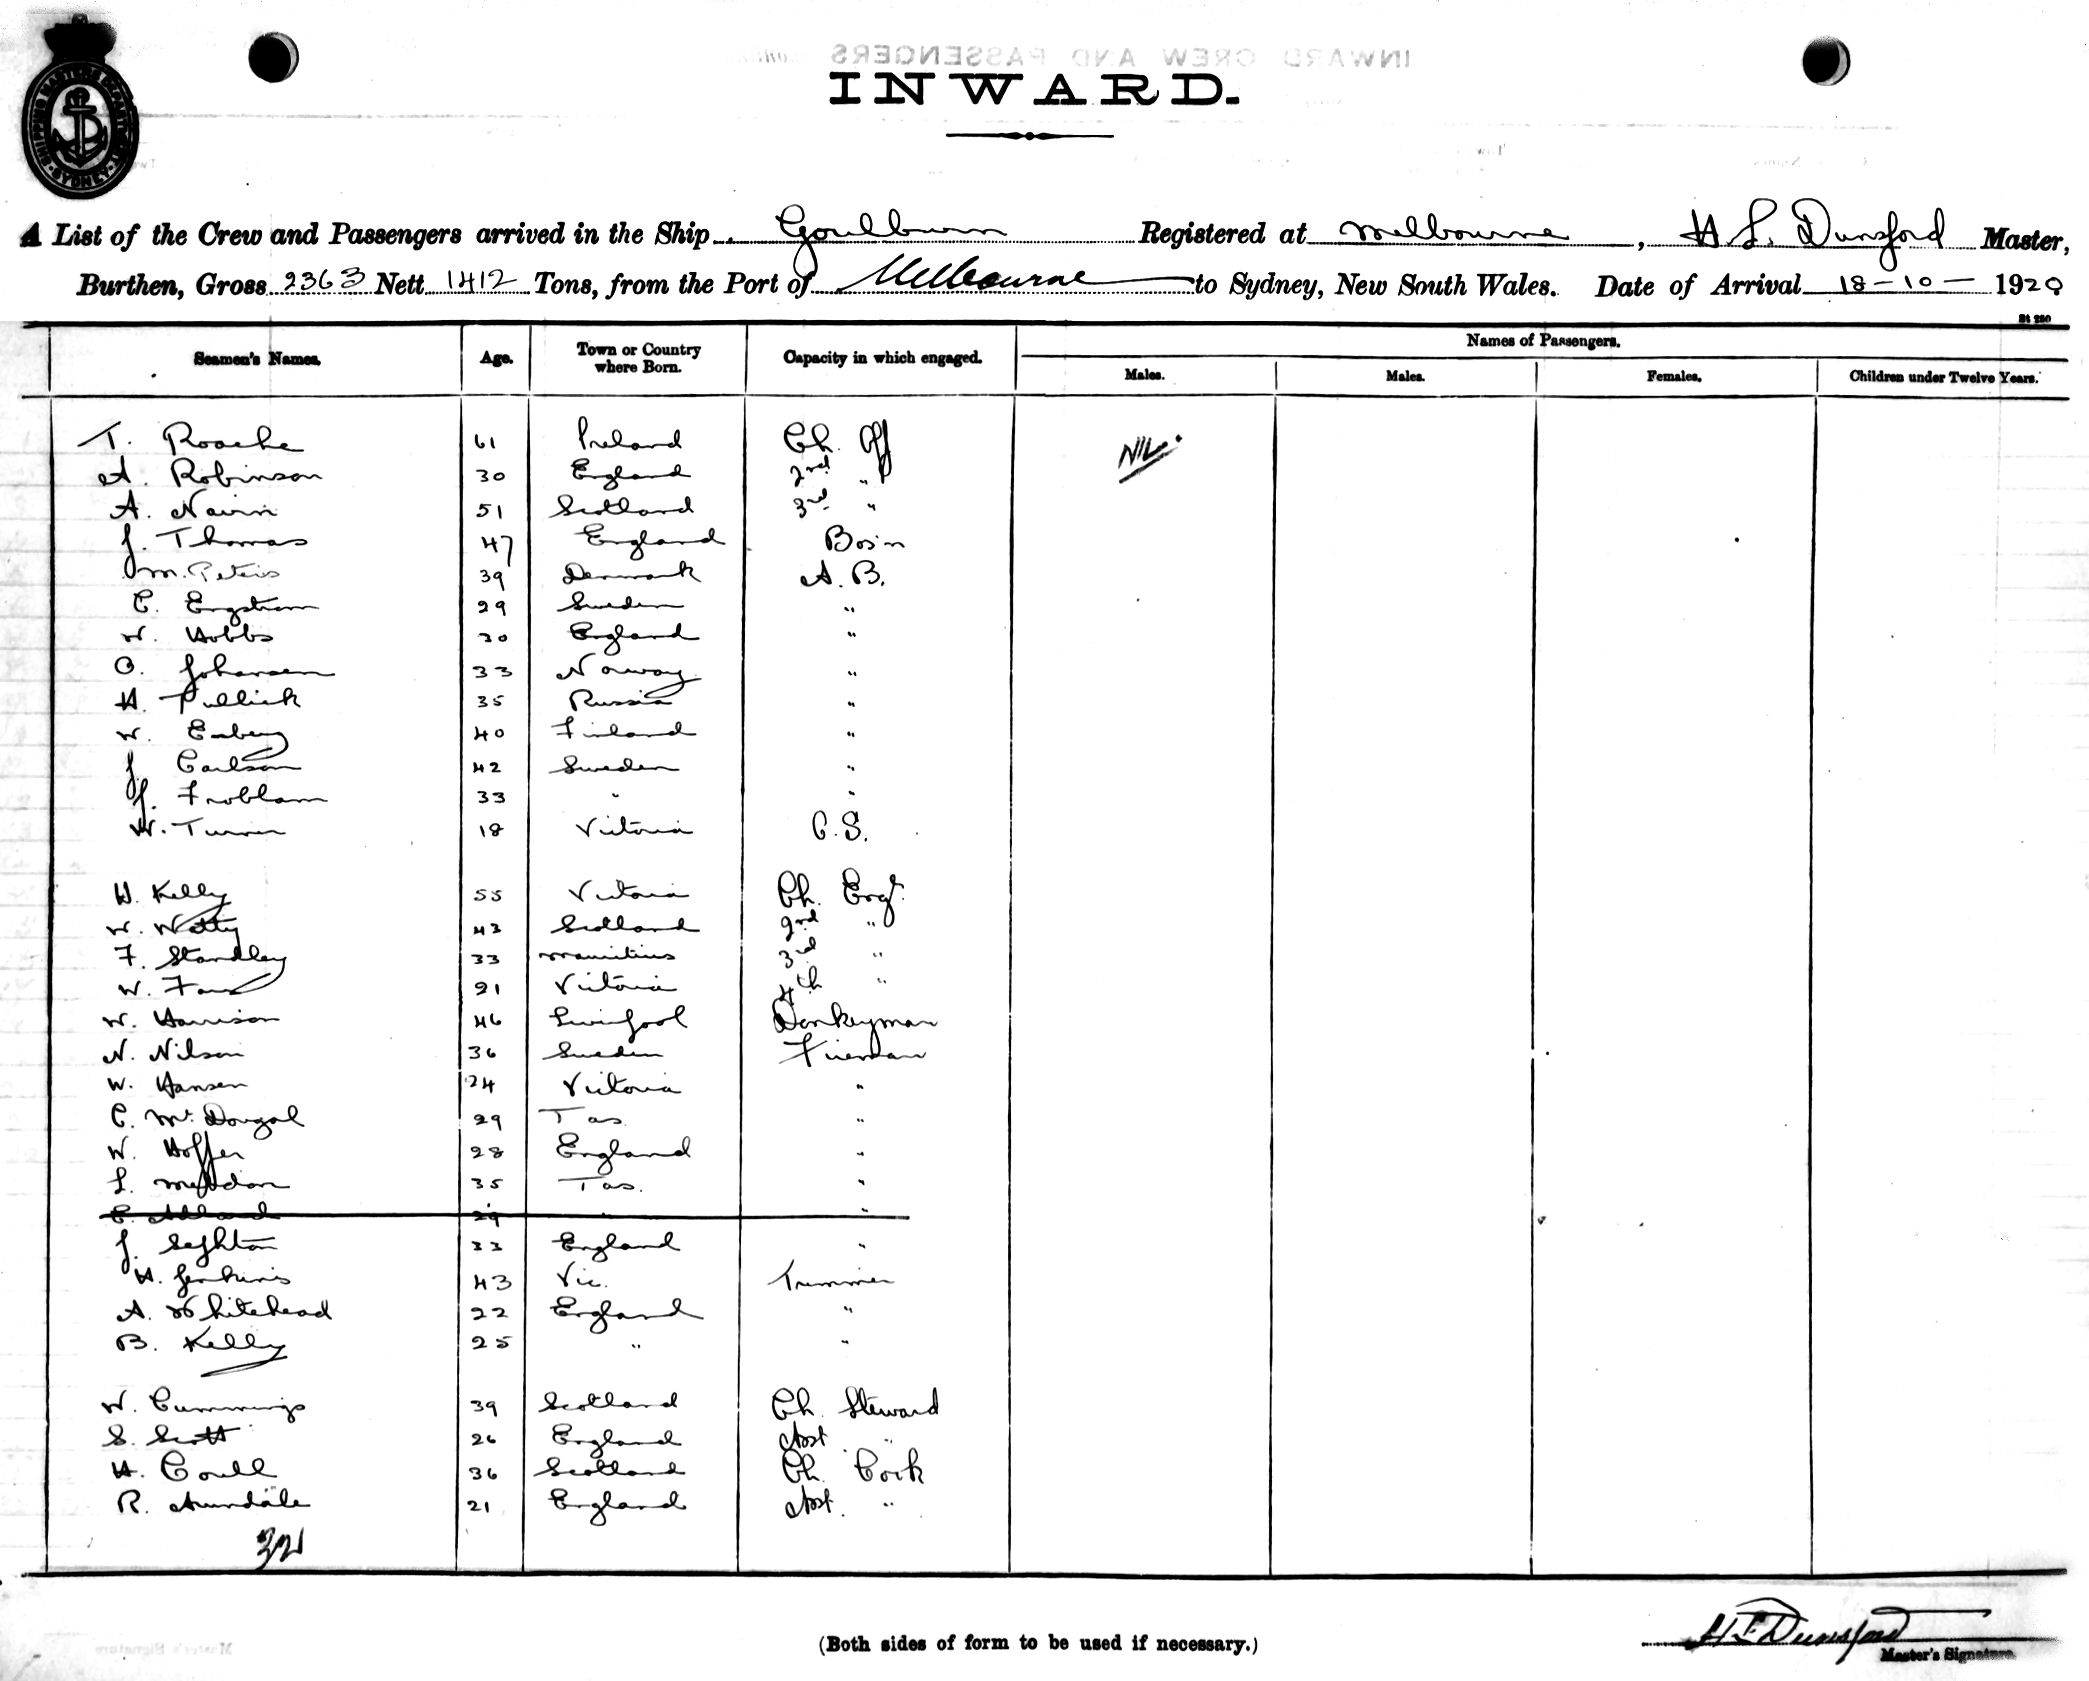 SHIPPING MASTERS DEPARTMENT SYDNEY
INWARD.
A List of the Crew and Passengers arrived in the Ship Goulburn Registered at Melbourne, H L. Dunsford Master,
Burthen, Gross 2363 Nett 1412 Tons, from the Port of Melbourne to Sydney, New South Wales. Date of Arrival 18-10-1920
St 280
Seamen's Names. Age. Town or Country where Born. Capacity in which engaged. Names of Passengers.
Males. Males. Females. Children under Twelve Years.
T. Roache 61 Ireland Ch. Off NIL.
A. Robinson 30 England 2nd "
A. Nairn 51 Scotland 3rd "
J. Thomas 47 England Bosn
M. Peters 39 Denmark A. B.
C. Engstrom 29 Sweden "
W. Hobbs 30 England "
O. Johansen 33 Norway "
H. Pullick 35 Russia "
W. Enberg 40 Finland "
J. Carlson 42 Sweden "
J. Froblom 33 " "
W. Turner 18 Victoria O.S.
H. Kelly 55 Victoria Ch. Engr.
W. Watty 43 Scotland 2nd "
F. Standley 33 Mauritius 3rd "
W. 21 Victoria 4th "
W. Harrison 46 Liverpool Donkeyman
N. Nilson 36 Sweden Fireman
W. Hansen 24 Victoria "
C. McDougal 29 Tas. "
W. Hoffer 28 England "
L. 35 Tas. "
C. 29 " "
J. Leighton 33 England "
H. Jenkins 43 Vic. Trimmer
A. Whitehead 22 England "
B. Kelly 25 " "
W. Cummings 39 Scotland Ch. Steward
S. Scott 26 England Asst "
H. Coull 36 Scotland Ch. Cook
R. Arundale 21 England Asst. "
32
(Both sides of form to be used if necessary.)
H L Dunsford
Master's Signature.